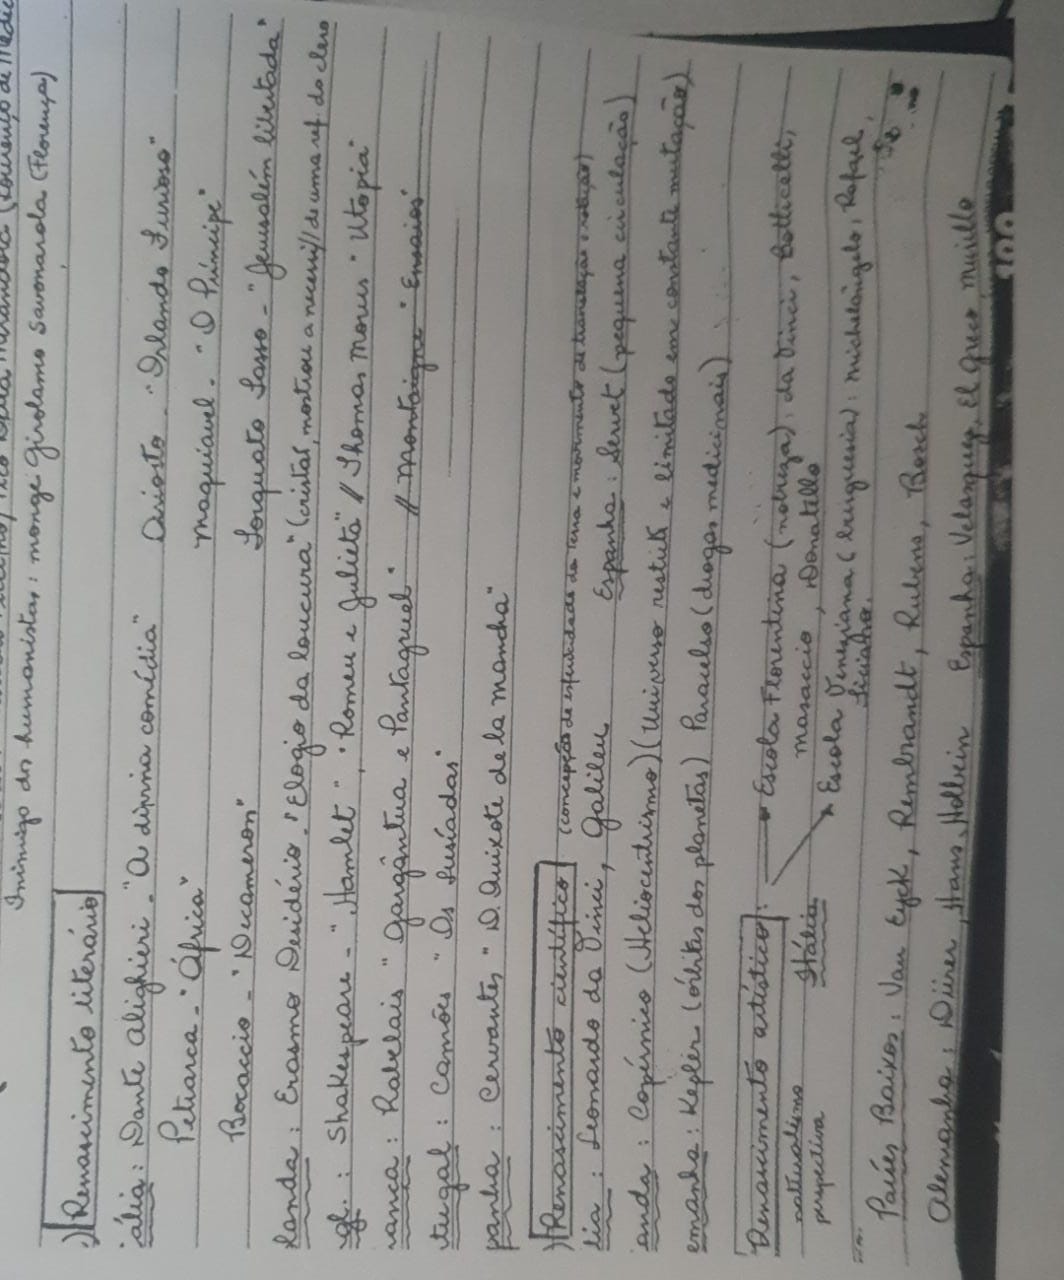 Inimigo dos humanistas: monge Girolamo Savonarola (Florença)
) Renascimento literário
ália: Dante alighieri - "A divina comédia" Ariosto - "Orlando Furioso"
Petrarca - "África" Maquiavel - "O Príncipe"
Bocaccio - "Decameron" Torquato Tasso - "Jerusalém libertada"
landa: Erasmo Desidério - "Elogio da loucura" (cristão, mostrou a necessi// de uma ref. do clero
gl.: Shakespeare - "Hamlet", "Romeu e Julieta" // Thomas Morus "Utopia"
rança: Rabelais "Gargântua e Pantagruel" // Montaigne "Ensaios"
tugal: Camões "Os Lusíadas"
panha: Cervantes "D. Quixote de la mancha"
) Renascimento científico (concepção de esfericidade da terra e movimento de translação e rotação)
lia: Leonardo da Vinci, Galileu Espanha: Servet (pequena circulação)
anda: Copérnico (Heliocentrismo) (Universo restrito e limitado em constante mutação)
emanha: Kepler (órbitas dos planetas) Paracelso (drogas medicinais)
Renascimento artístico: Escola Florentina (nobreza): da Vinci, Botticelli,
naturalismo masaccio, Donatello
perspectiva Itália Escola Veneziana (burguesia): michelângelo, Rafael,
Ticiano.
Países Baixos: Van Eyck, Rembrandt, Rubens, Bosch
Alemanha: Dürer, Hans Holbein Espanha: Velasquez, El Greco, Murillo